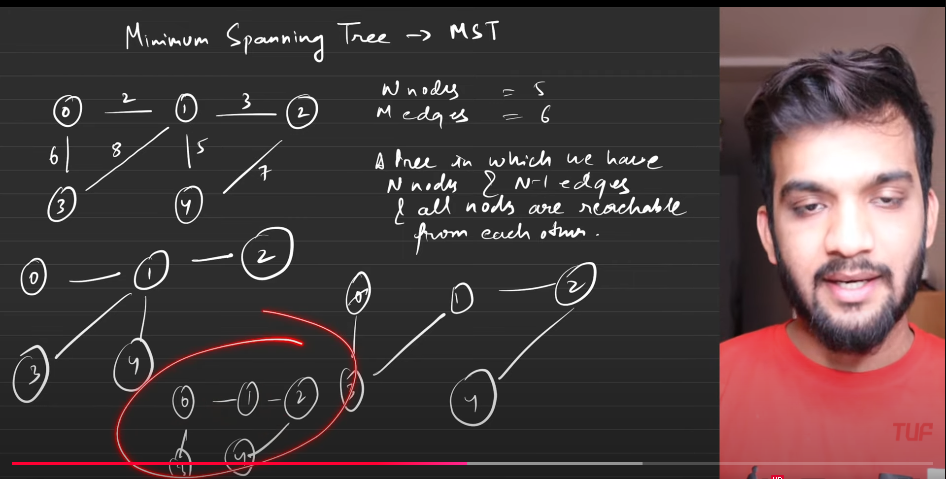 Minimum Spanning Tree → MST
N nodes = 5
M edges = 6
0 2 1 3 2
6 8 5 7
3 4
A tree in which we have
N nodes & N-1 edges
& all nods are reachable
from each other.
0 1 2
3 4
0 1 2
3 4
0 1 2
4
TUF